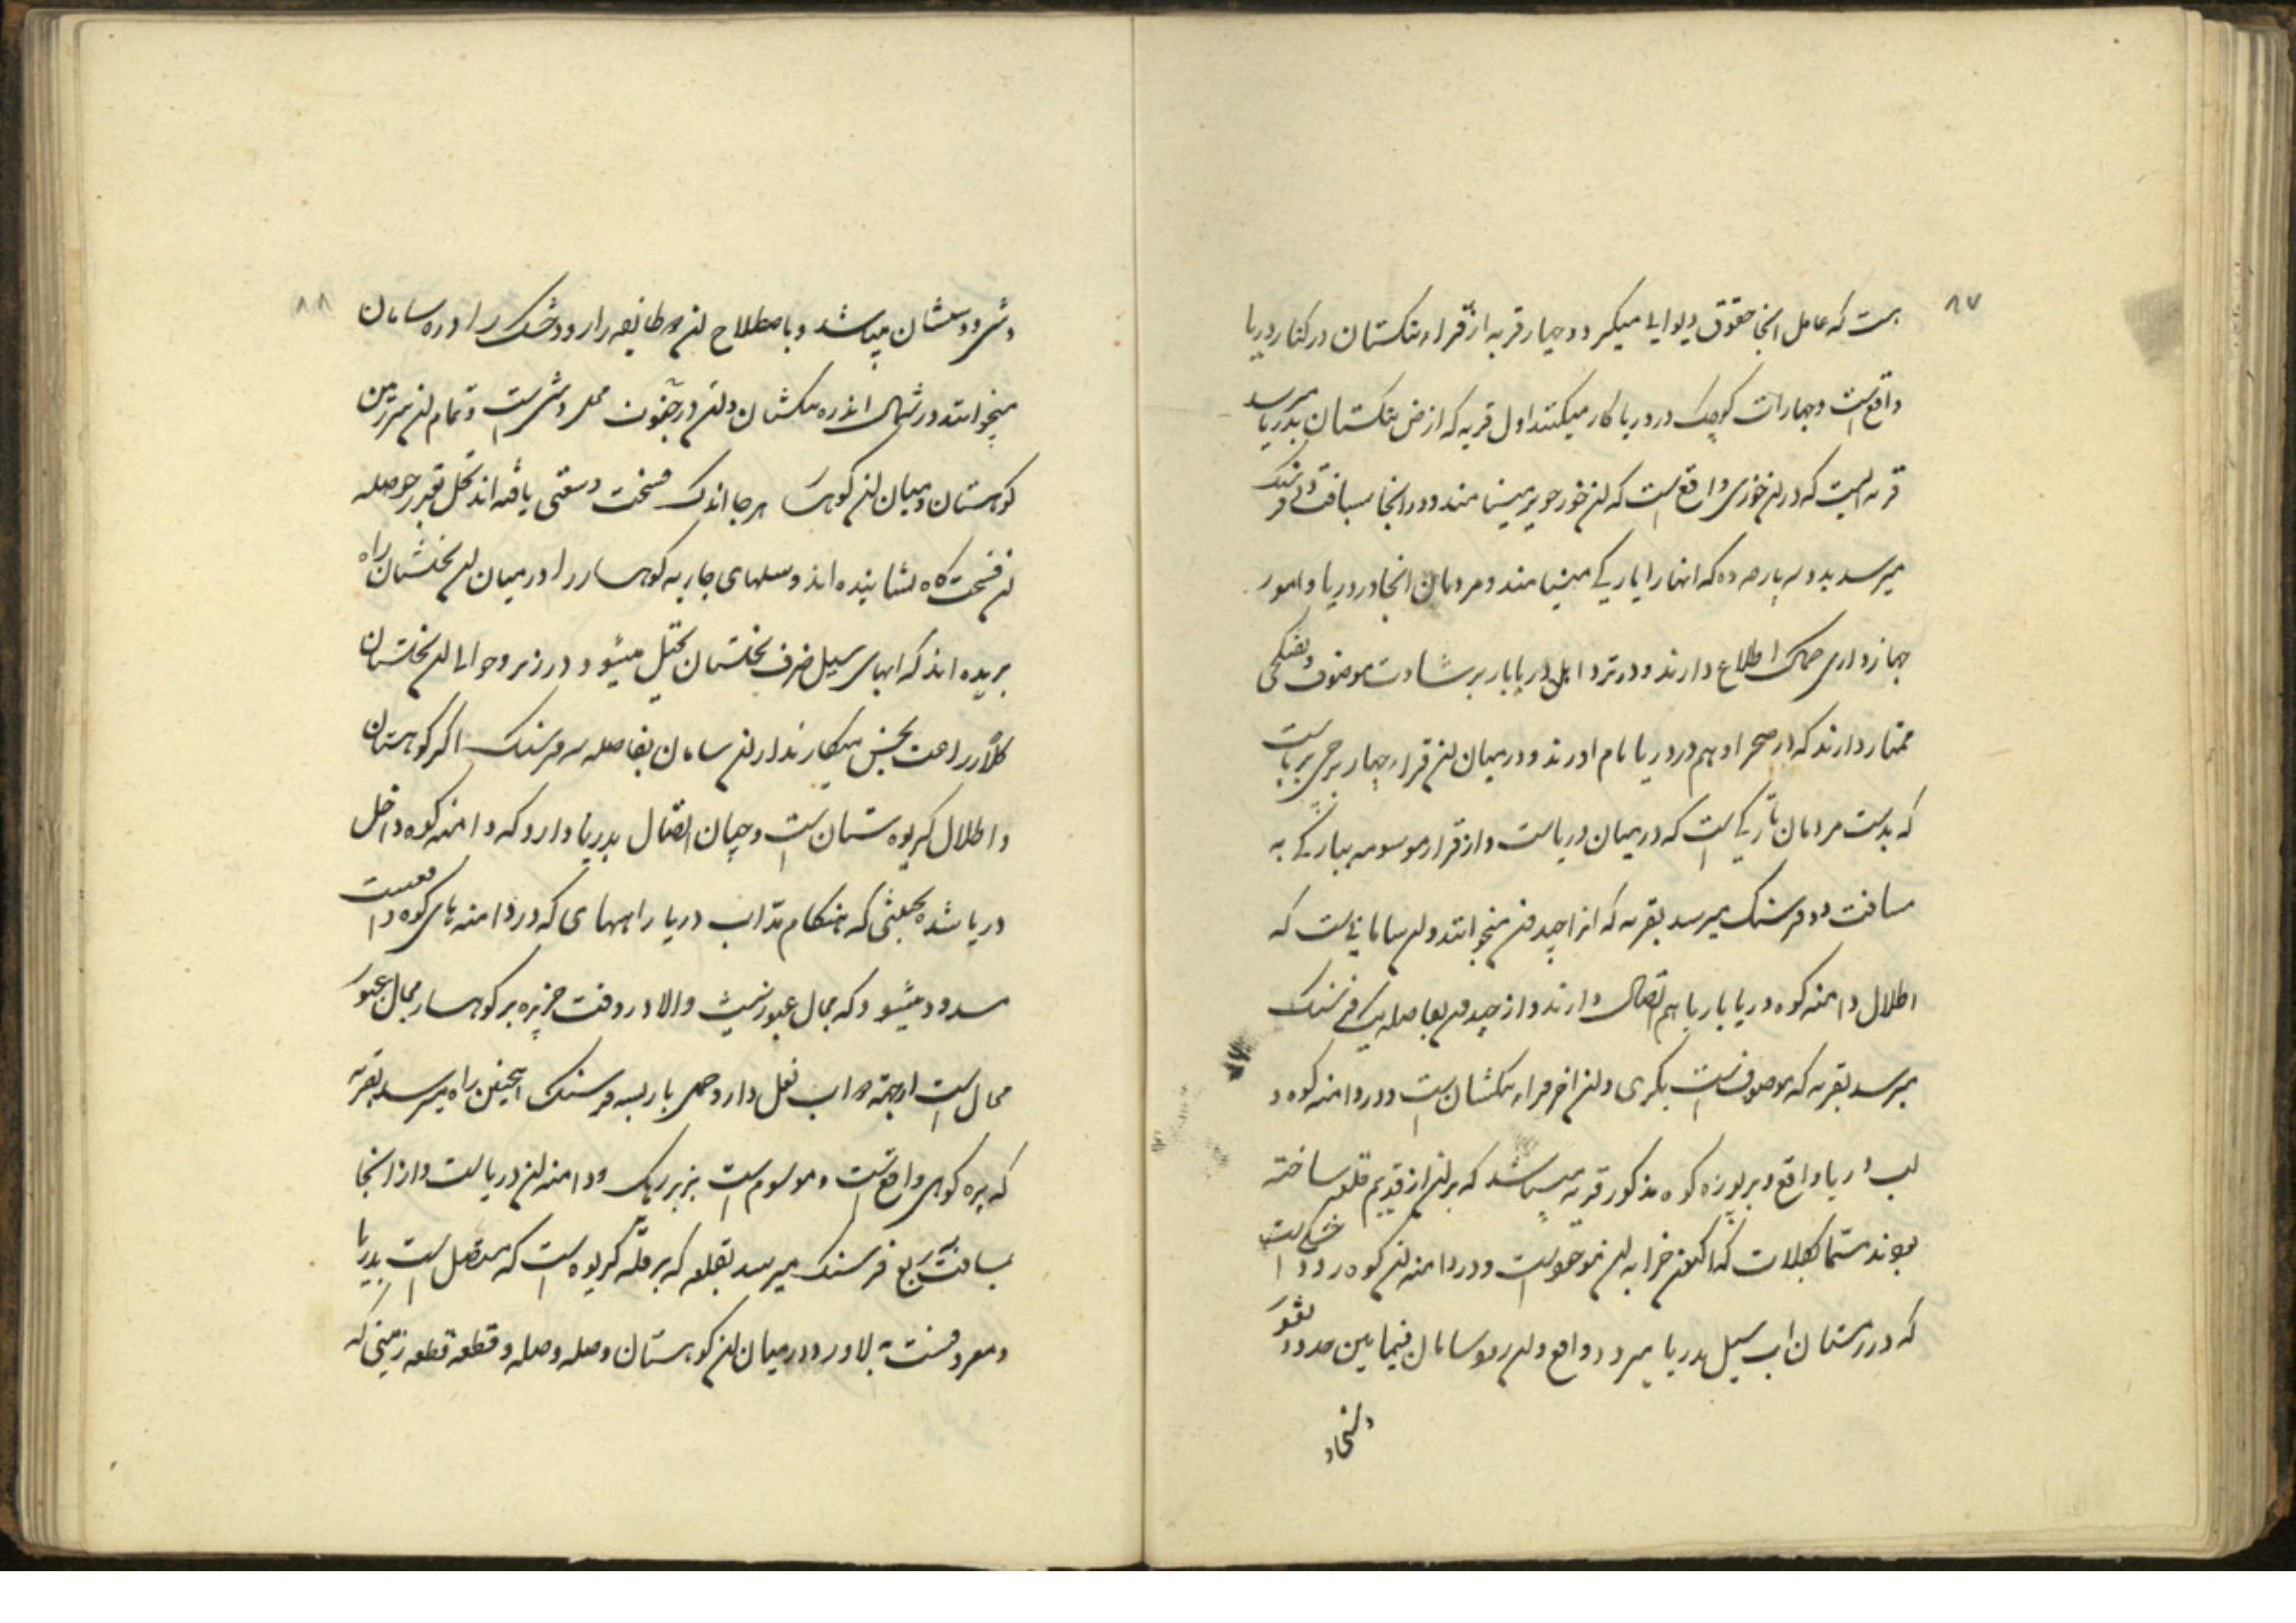 ۸۷
است که عامل انجا حقوق دیوانی میگیرد و چهار قریه از قراء تنگستان در کنار دریا
واقع است و جهازات کوچک در دریا کار میکنند اول قریه که از ارض تنگستان بدریا میرسد
قریه ایست که در ان خوری واقع است که ان خور را خویر مینامند و در انجا بمسافت دو فرسنگ
میرسد بدو سه پارچه ده که انها را باریکی مینامند و مردمان انجا در دریا و امور
جهازداری کمال اطلاع دارند و در نزد اهل دریابار برشادت موصوف و تفنگچی
ممتاز دارند که در صحرا و هم در دریا نام اورند و در میان ان قراء چهار برجی برپاست
که بدست مردمان تاریکی است که در میان دریاست و از قراء موسومه بباریکی به
مسافت دو فرسنگ میرسد بقریه که انرا خواندند و ان سامانی است که
اطلال دامنه کوه و دریابار با هم اتصال دارند و از بفاصله یک فرسنگ
میرسد بقریه که موصوف است بکری و ان اخر قراء تنگستان است و در دامنه کوه و
لب دریا واقع و بر پوزه کوه مذکور قریه میباشد که بر ان از قدیم قلعه ساخته
بودند مسما بکلات که اکنون خرابه ان موجود است و در دامنه ان کوه رود خشکی است
که در زمستان اب سیل بدریا میبرد واقع و ان رود سامان فیما بین حدود
و انجا
۸۸
دشتی و تنگستان میباشد و باصطلاح ان طایفه را رود خشک را دره سامان
میخوانند در شمال ان دره تنگستان و ان در جنوب محل دشتی است و تمام ان سرزمین
کوهستان و میان ان کوهها هر جا اندک فسحت و وسعتی یافته اند نخل بقدر حوصله
ان فسحت گاه نشانیده اند و سیلهای جاریه کوهسار را در میان ان نخلستان راه
بریده اند که ابهای سیل صرف نخلستان نخیل میشود و در زیر و حوالی ان نخلستان
کلا زراعت بخس میکارند از ان سامان بفاصله سه فرسنگ اکر کوهستان
و اطلال کریوه ستان است و چنان اتصال بدریا دارد که دامنه کوه داخل
دریا شده بحیثی که هنکام مد اب دریا راههای که در دامنه های کوه واقعست
مسدود میشود که مجال عبور نیست والا در وقت جزیره بر کوهسار مجال عبور
محال است اب نعل دارد سه فرسنگ همچنین راه میرسد بقریه
که بره کوهی واقع است و موسوم است بزیر ریک و دامنه ان دریاست و از انجا
بمسافت ربع فرسنگ میرسد بقلعه که بر قله کریوه است که متصل است بدریا
و معروفست به لاور و در میان ان کوهستان وصله وصله و قطعه قطعه زمینی که